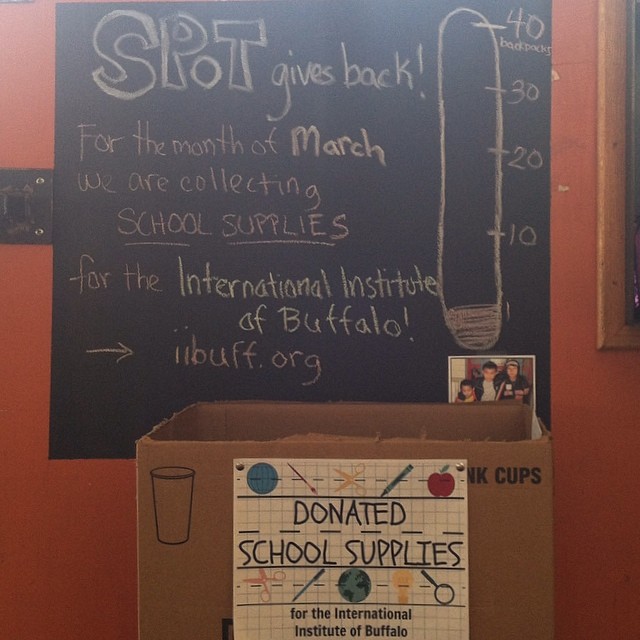 SPoT gives back!
For the month of March
we are collecting
SCHOOL SUPPLIES
for the International Institute
of Buffalo!
→ iibuff.org
40
backpacks
30
20
10
NK CUPS
DONATED
SCHOOL SUPPLIES
for the International
Institute of Buffalo